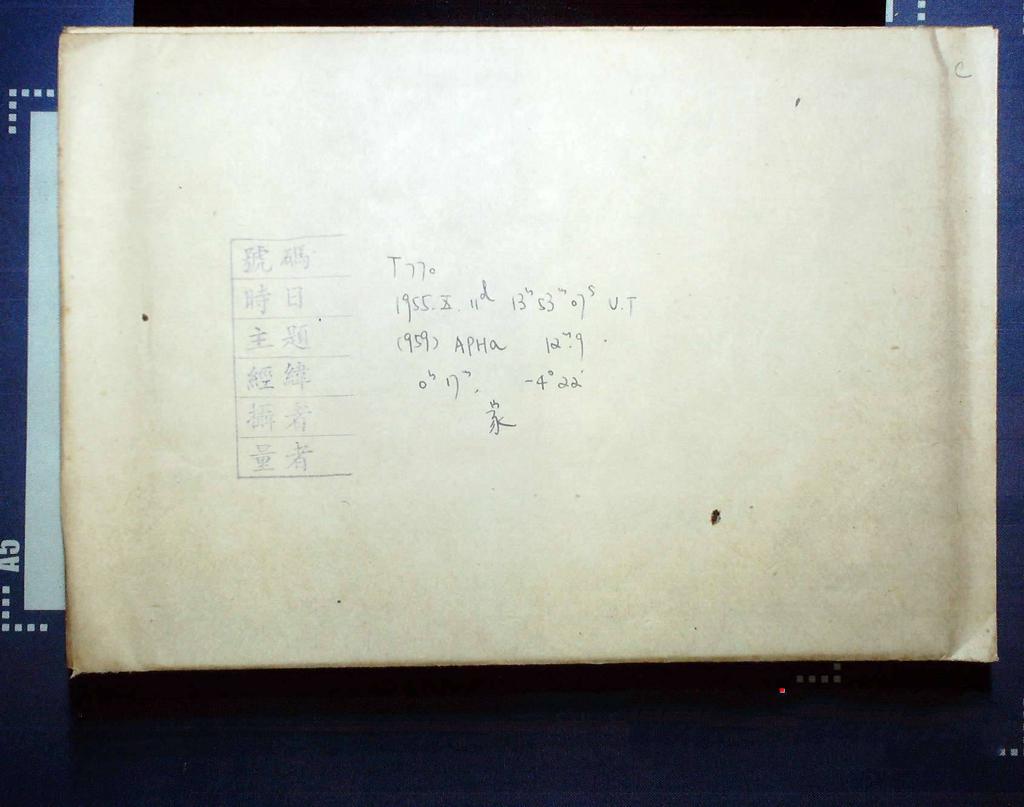 C
號碼 T770
時日 1955. X. 11d 13h 53m 07s U.T
主題 (959) APHa 12m.9
經緯 0h 17m. -4° 22'
攝者
量者
A5